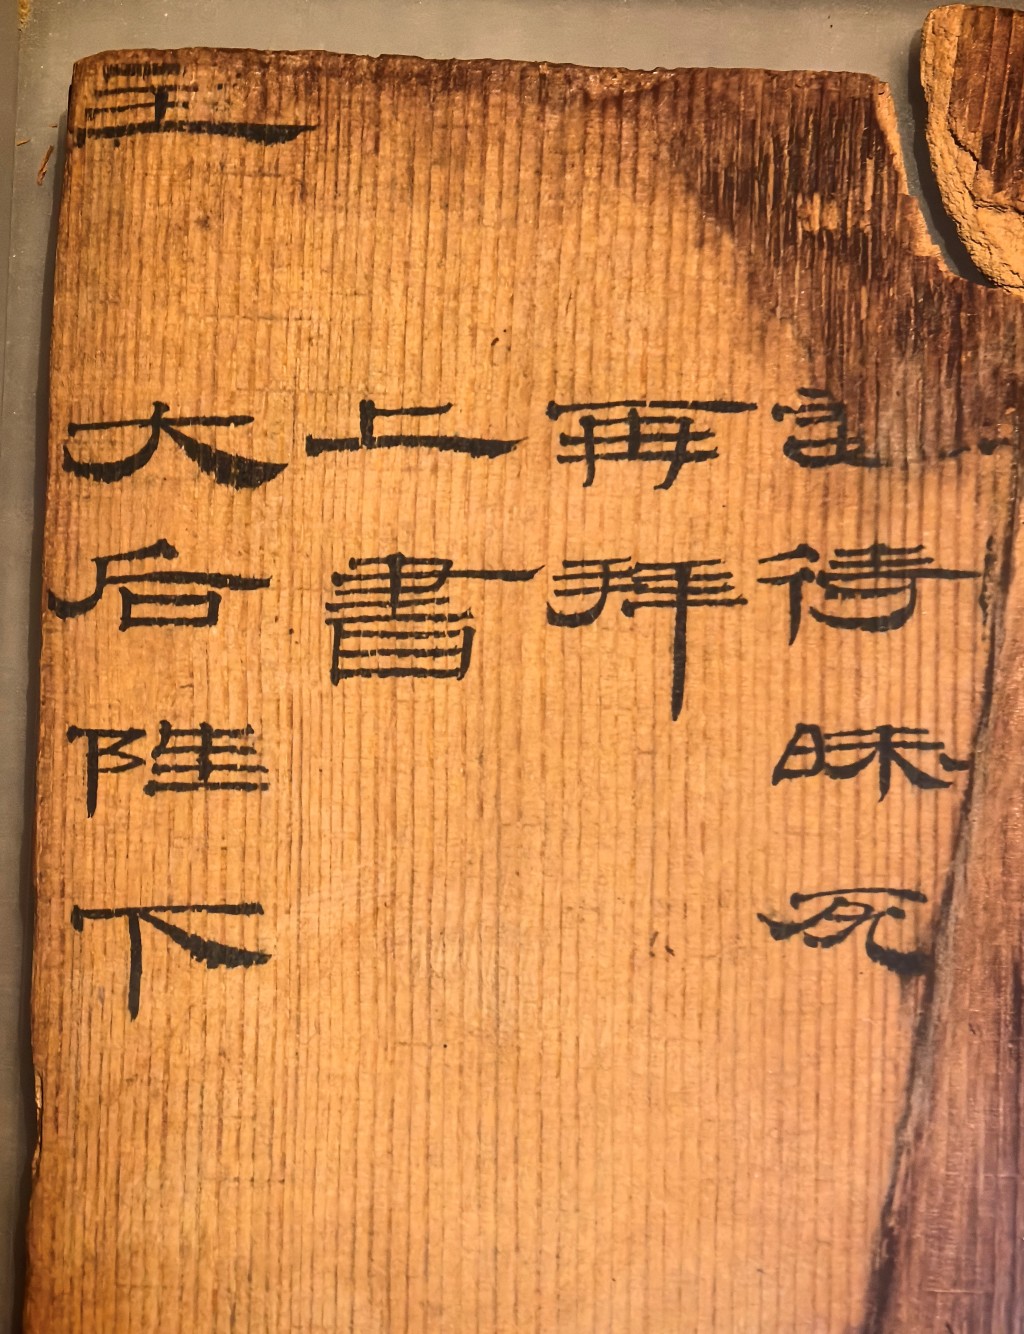 妾待昧死
再拜
上書
皇大后陛下